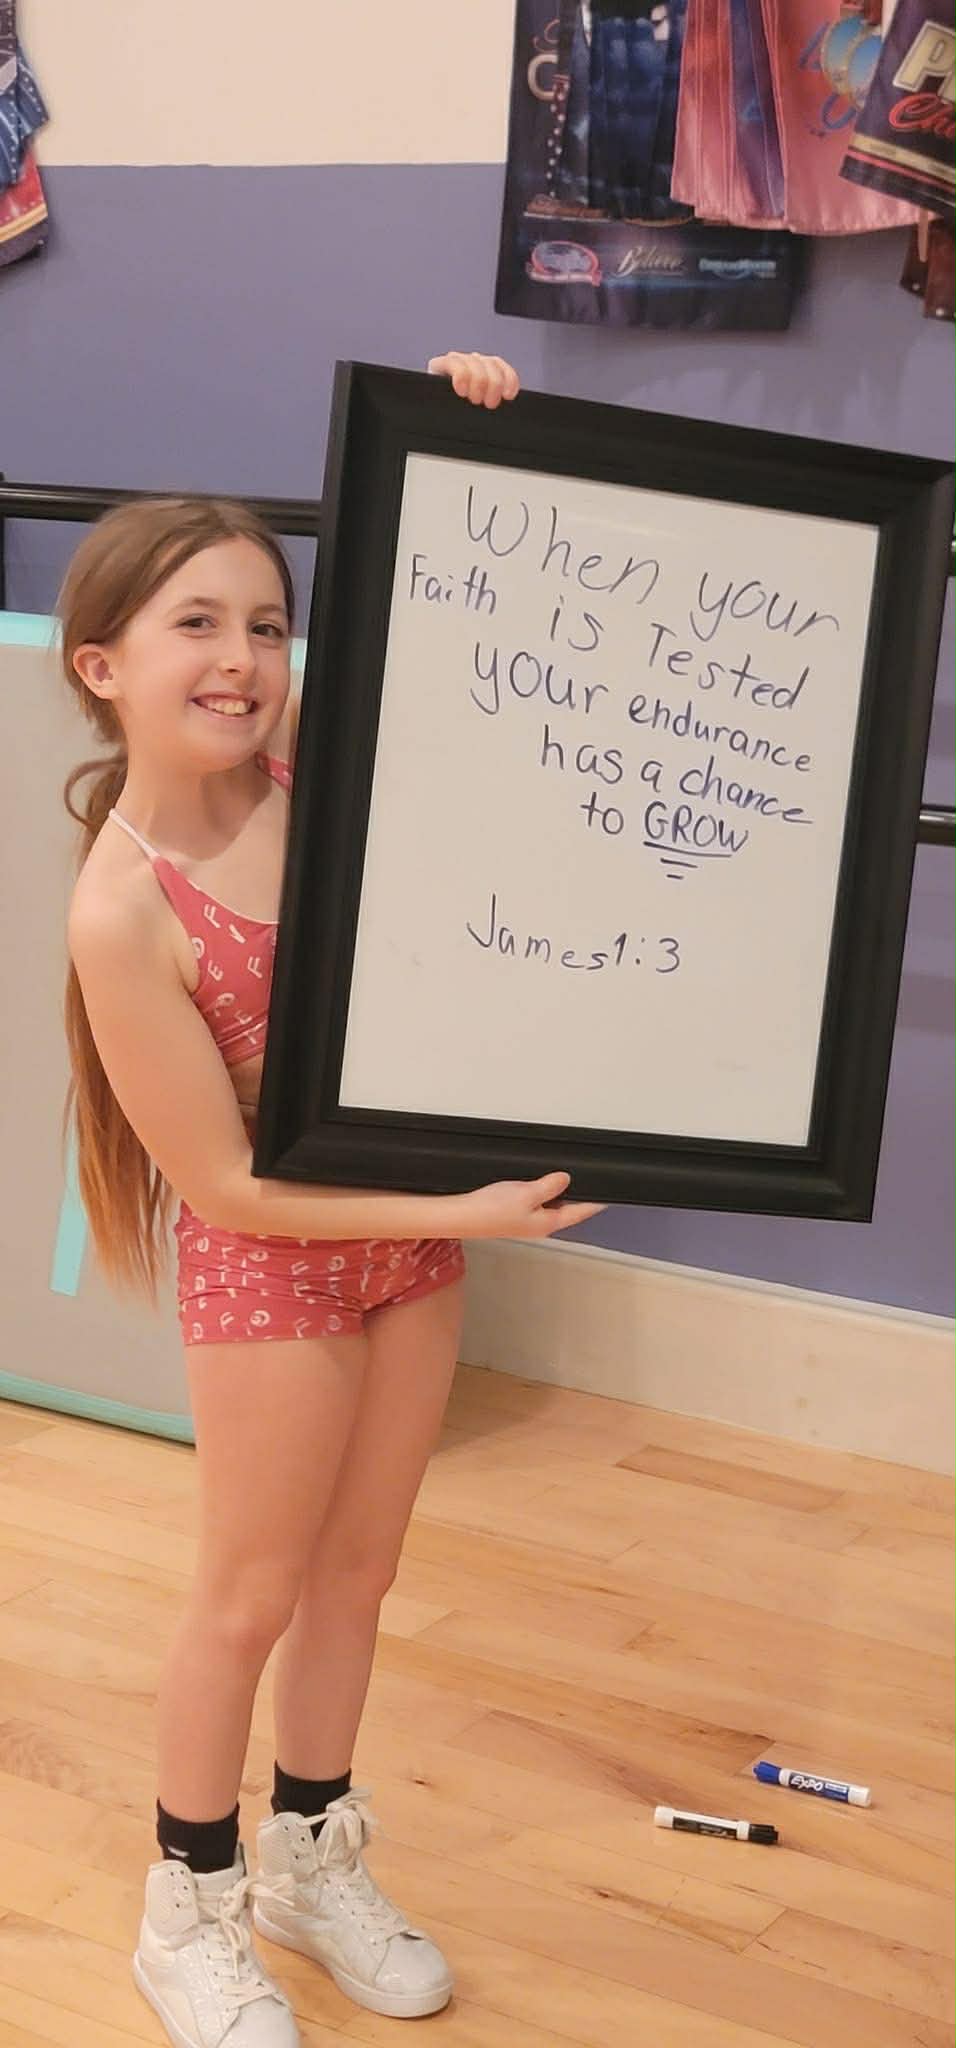 When your
Faith is Tested
your endurance
has a chance
to GROW
James 1:3
Believe
EXPO